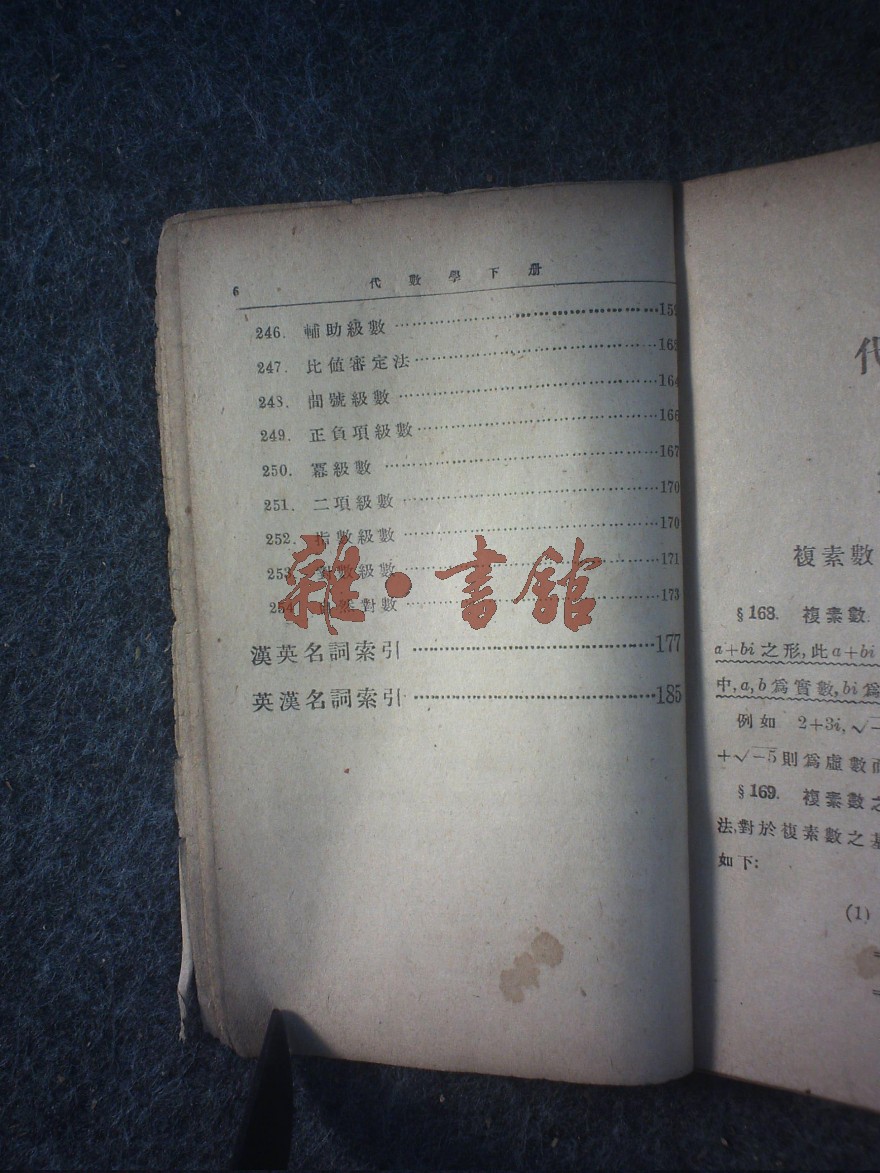 6 代數學下册
246. 輔助級數 159
247. 比值審定法 163
248. 間號級數 164
249. 正負項級數 166
250. 冪級數 167
251. 二項級數 170
252. 指數級數 170
253. 對數級數 171
254. 自然對數 173
漢英名詞索引 177
英漢名詞索引 185
雜·書館
代
複素數
§168. 複素數
a+bi之形,此a+bi
中,a,b爲實數,bi爲
例如 2+3i,√−
+√−5則爲虛數而
§169. 複素數之
法,對於複素數之基
如下:
(1)